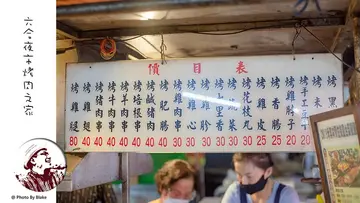 六合夜市烤肉之家
價目表
烤雞腿 80
烤雞翅 40
烤豬肉串 40
烤牛肉串 40
烤羊肉串 40
烤培根串 40
烤鹹豬肉 40
烤肥腸 40
烤雞肉串
烤雞心 30
烤雞胗 30
烤七里香 30
烤蔬菜 30
烤花枝丸 30
烤雞皮 25
烤香腸 25
烤雞脖子 20
手工豆干 20
烤米 20
烤黑
@ Photo By Blake